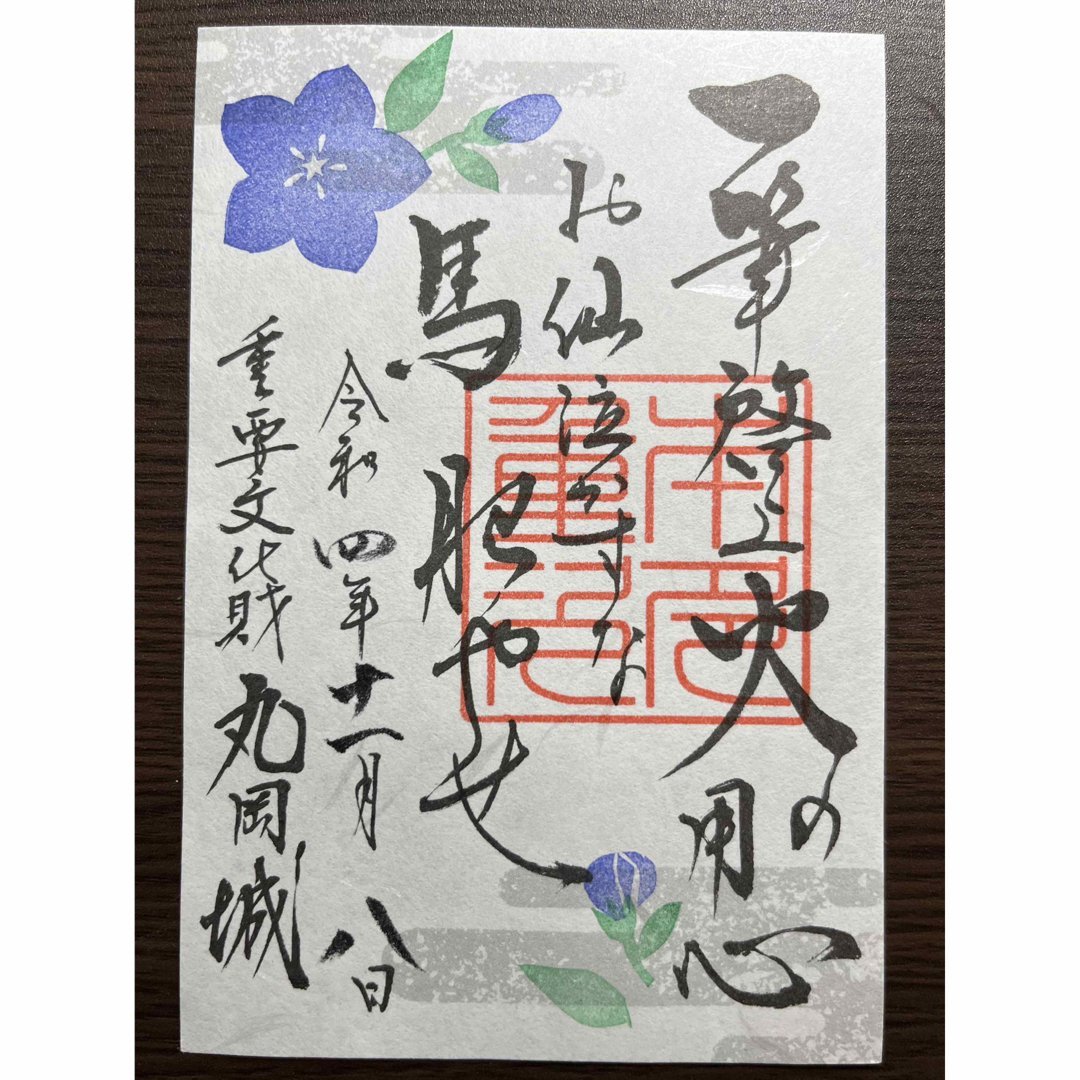 一筆啓上火の用心
お仙泣かすな
馬肥やせ
令和四年十一月八日
重要文化財 丸岡城